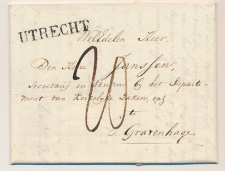 UTRECHT
WelEdelen Heer,
Den Heer Janssen,
Secretaris en bij het Departe-
ment van Zaken, enz
te
Gravenhage
20